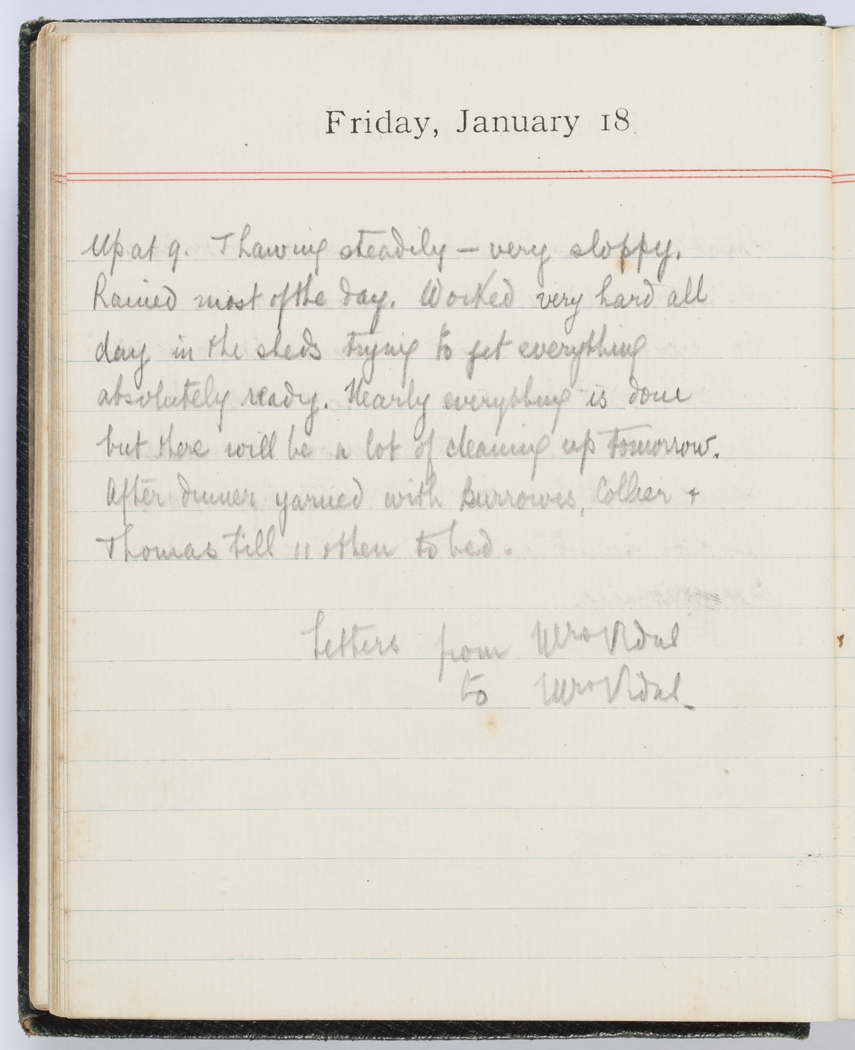 Friday, January 18
Up at 9. Thawing steadily — very sloppy.
Rained most of the day. Worked very hard all
day in the sheds trying to get everything
absolutely ready. Nearly everything is done
but there will be a lot of cleaning up tomorrow.
After dinner yarned with Burrowes, Collier +
Thomas till 11 & then to bed.
Letters from Mrs Vidal
to Mrs Vidal.